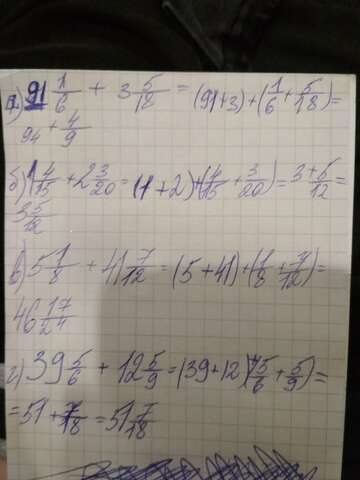 а) 91 1/6 + 3 5/18 = (91+3)+(1/6+5/18)=
94 + 4/9
б) 1 4/15 + 2 3/20 = (1+2)+(4/15+3/20)=3+5/12=
3 5/12
в) 5 1/8 + 41 7/12 = (5+41)+(1/8+7/12)=
46 17/24
г) 39 5/6 + 12 5/9 = (39+12)(5/6+5/9)=
= 51 + 7/18 = 51 7/18